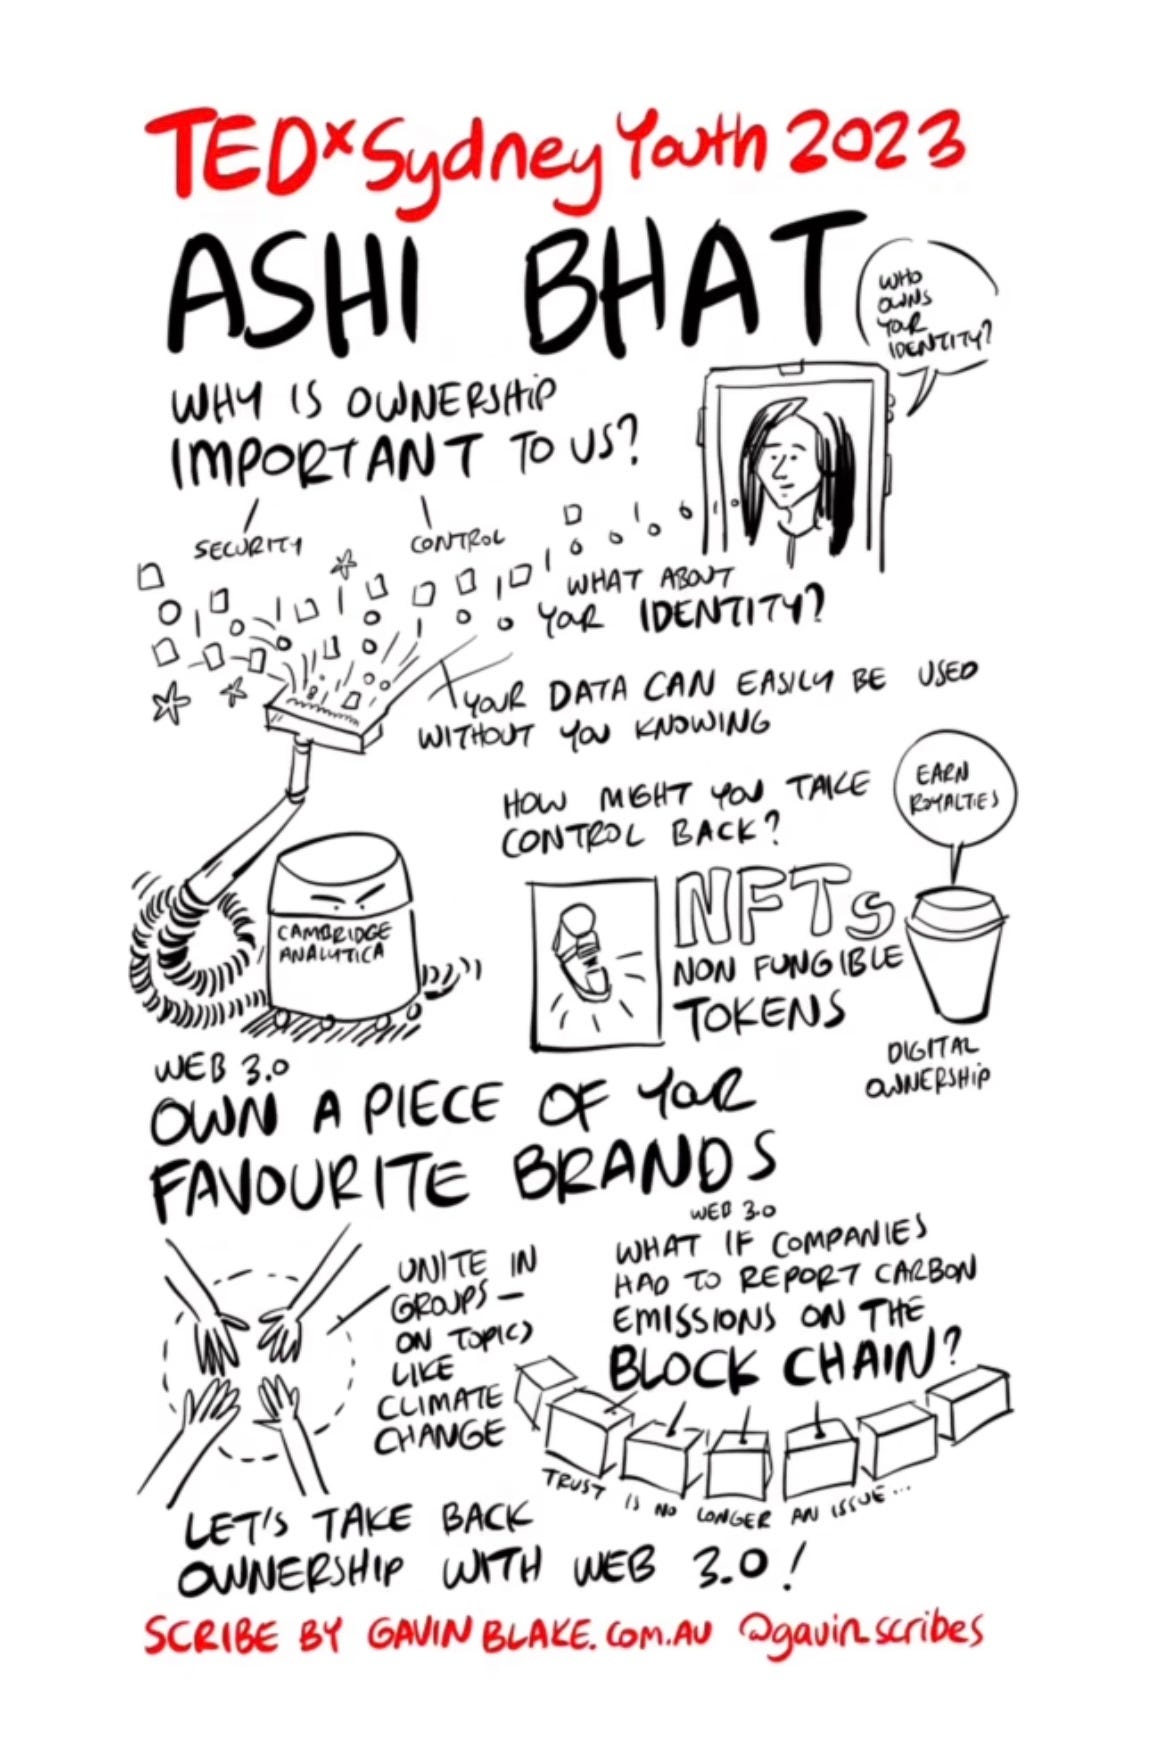 TEDxSydney Youth 2023
ASHI BHAT
WHO
OWNS
YOUR
IDENTITY?
WHY IS OWNERSHIP
IMPORTANT TO US?
SECURITY
CONTROL
WHAT ABOUT
YOUR IDENTITY?
YOUR DATA CAN EASILY BE USED
WITHOUT YOU KNOWING
HOW MIGHT YOU TAKE
CONTROL BACK?
EARN
ROYALTIES
CAMBRIDGE
ANALYTICA
NFTs
NON FUNGIBLE
TOKENS
DIGITAL
OWNERSHIP
WEB 3.0
OWN A PIECE OF YOUR
FAVOURITE BRANDS
UNITE IN
GROUPS –
ON TOPICS
LIKE
CLIMATE
CHANGE
WEB 3.0
WHAT IF COMPANIES
HAD TO REPORT CARBON
EMISSIONS ON THE
BLOCK CHAIN?
TRUST IS NO LONGER AN ISSUE...
LET'S TAKE BACK
OWNERSHIP WITH WEB 3.0!
SCRIBE BY GAVINBLAKE.COM.AU @gavinscribes